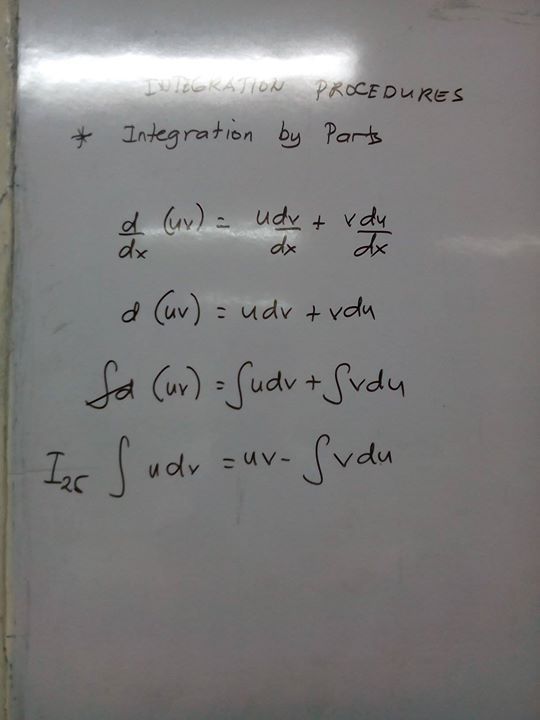 INTEGRATION PROCEDURES
* Integration by Parts
d/dx (uv) = u dv/dx + v du/dx
d (uv) = udv + vdu
∫d (uv) = ∫udv + ∫vdu
I₂₅ ∫ udv = uv - ∫vdu